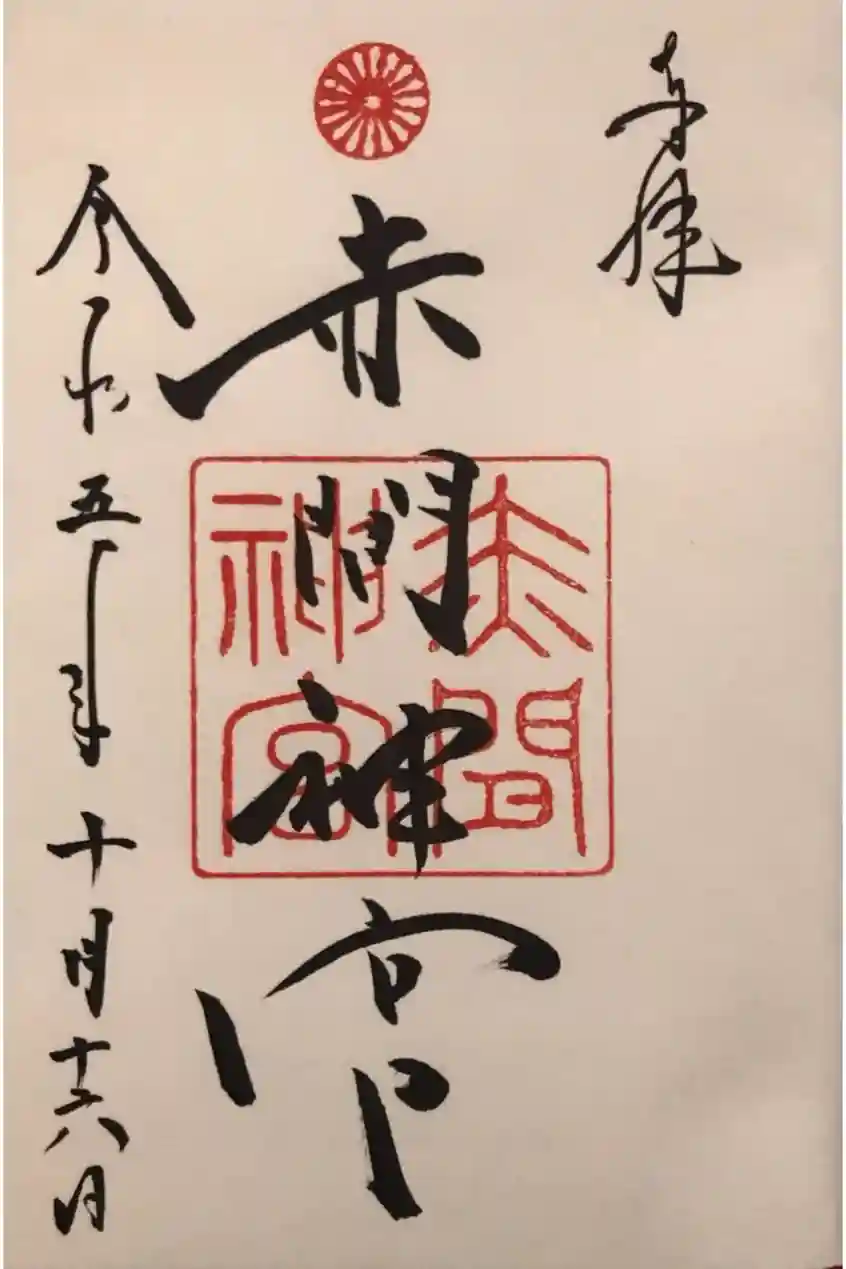 奉拝
赤間神宮
赤間
神宮
令和五年十月十六日